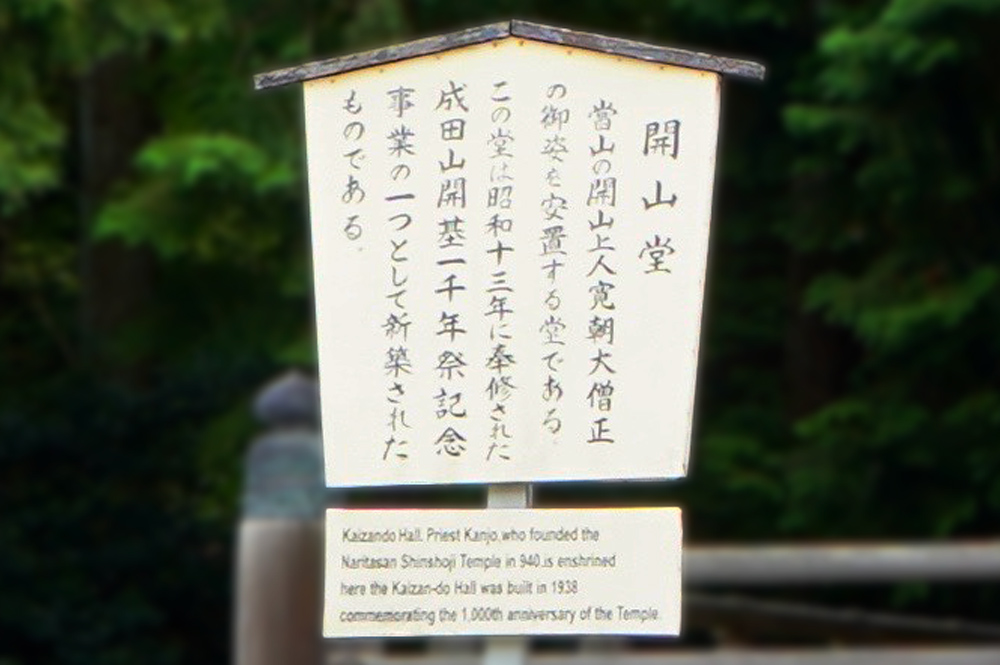 開山堂
當山の開山上人寛朝大僧正
の御姿を安置する堂である
この堂は昭和十三年に奉修された
成田山開基一千年祭記念
事業の一つとして新築された
ものである。
Kaizando Hall. Priest Kanjo,who founded the
Naritasan Shinshoji Temple in 940.is enshrined
here the Kaizan-do Hall was built in 1938
commemorating the 1,000th anniversary of the Temple.